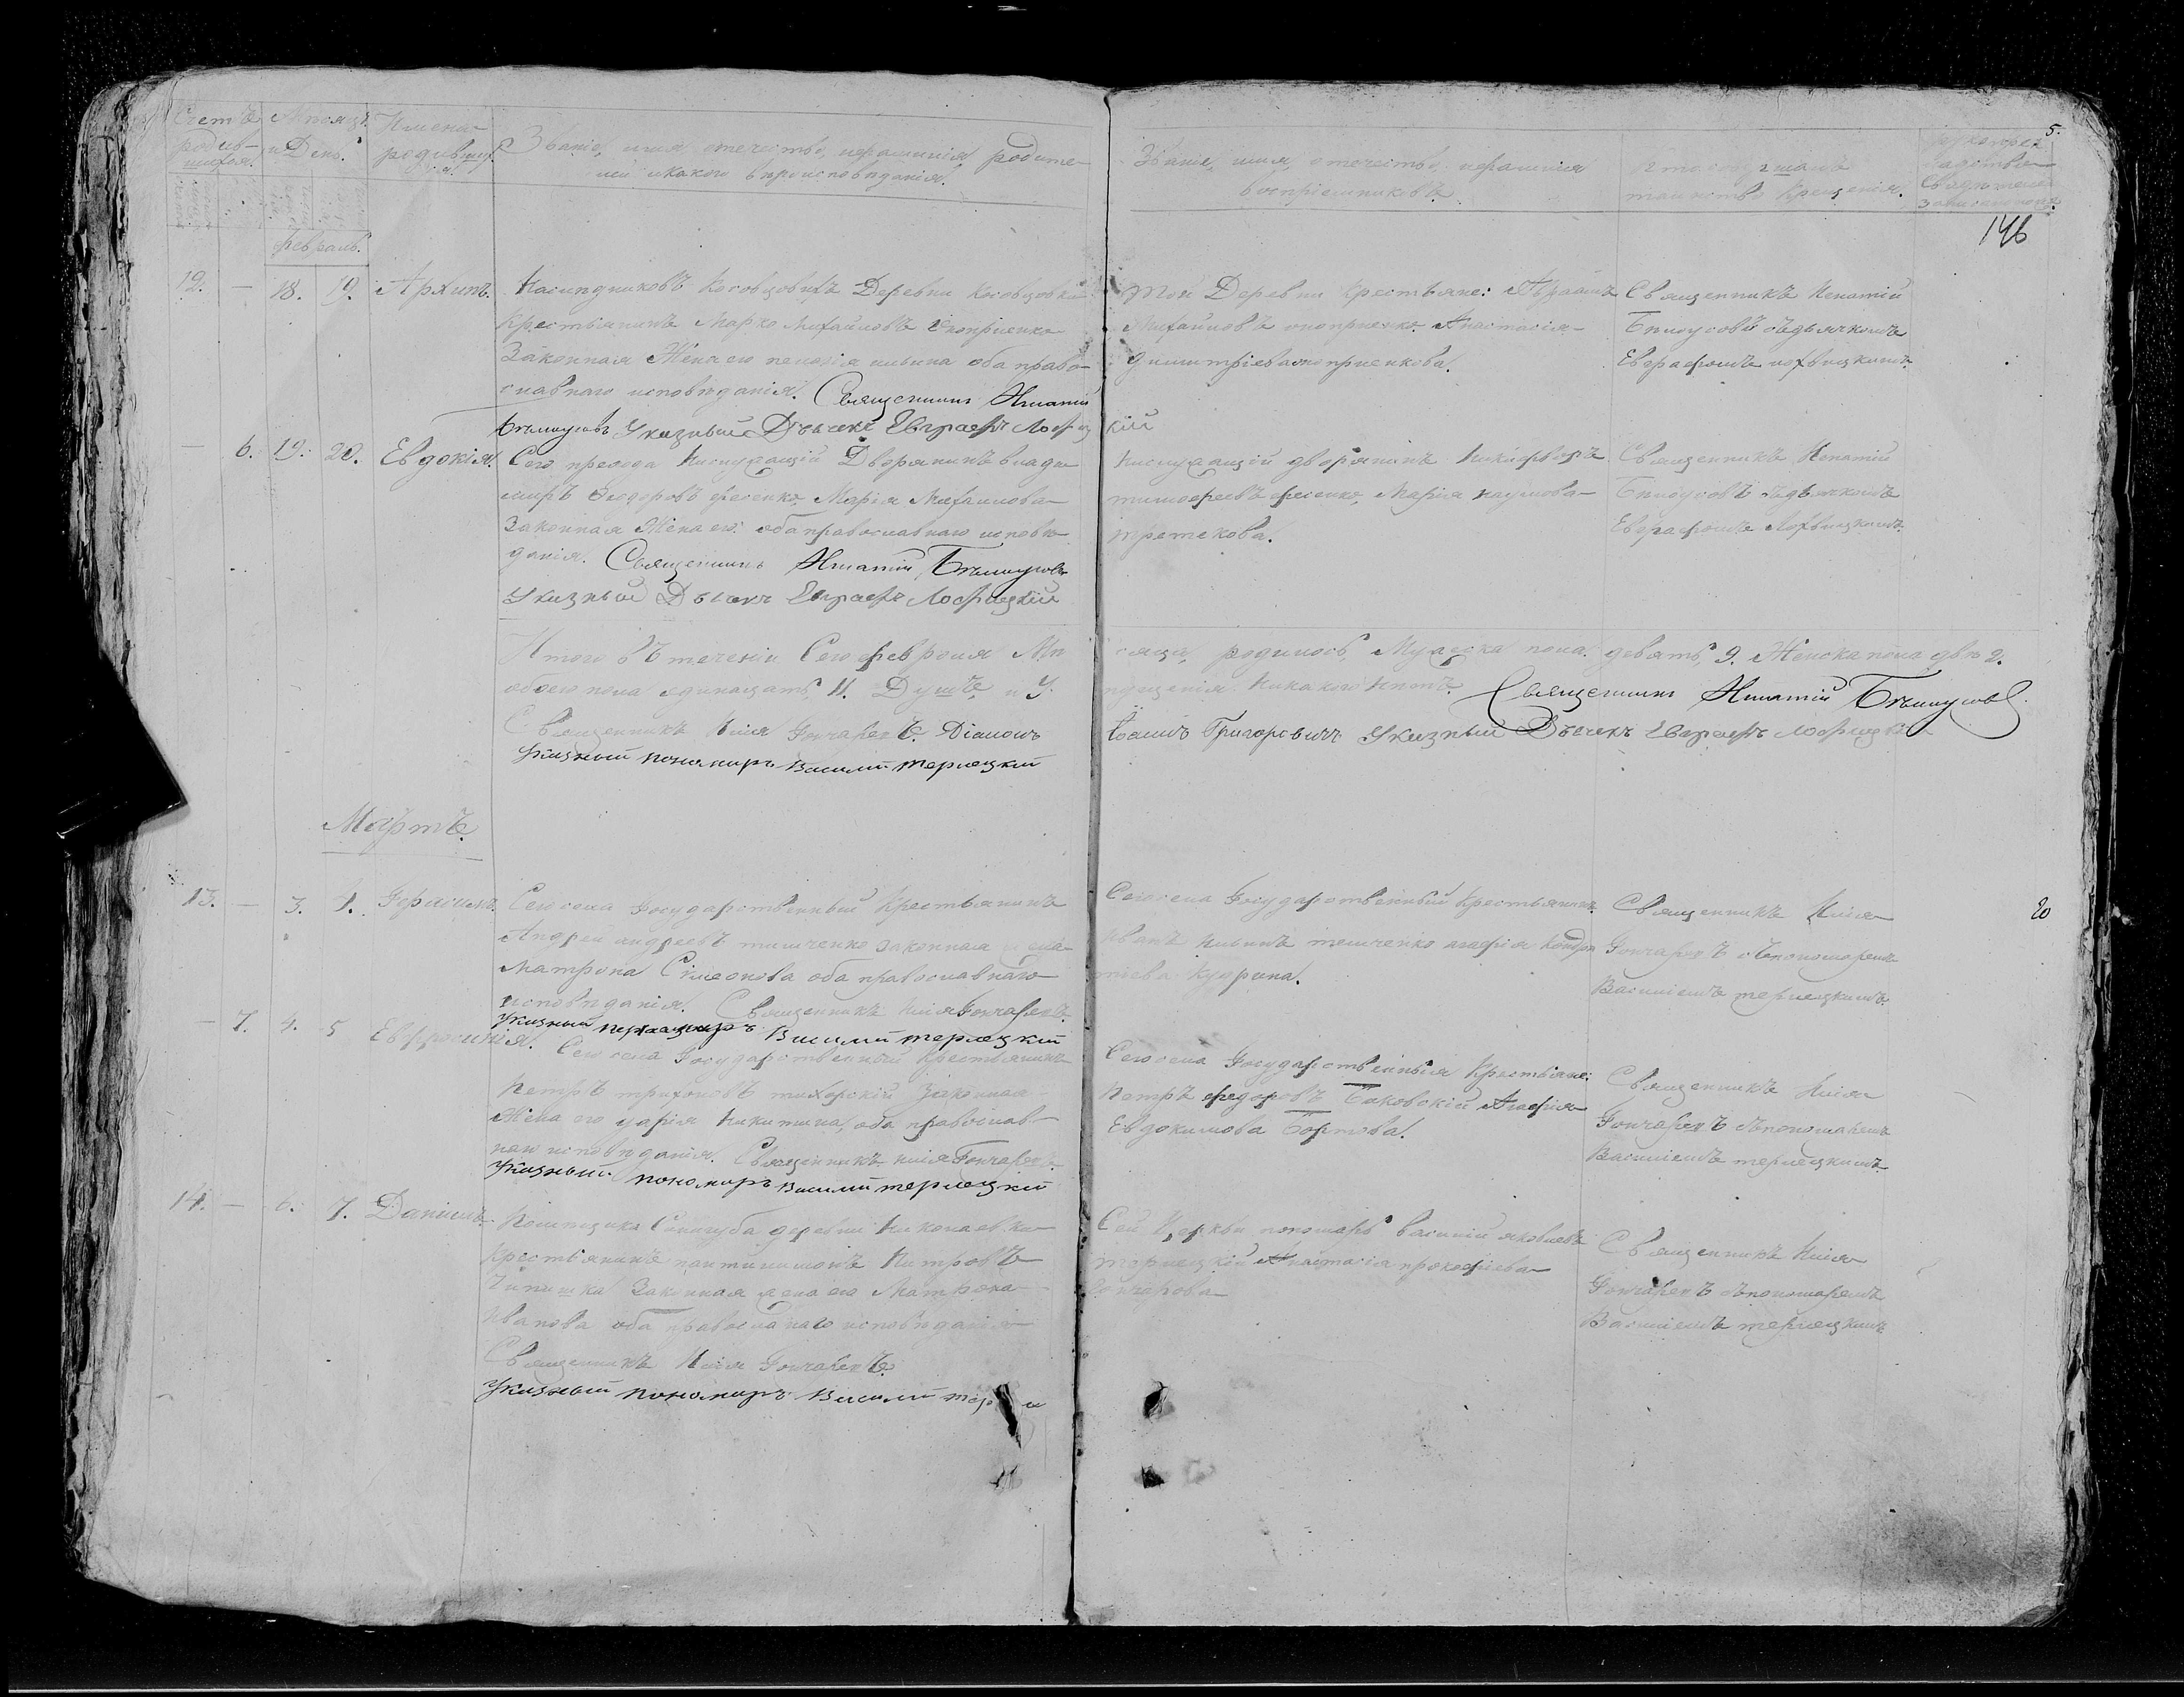 Счетъ родив-шихся.
Мѣсяцъ и День.
Имена родившихся.
Званіе, имя, отечество, и фамилія родите-
лей и какого вѣроисповѣданія.
Званіе, имя, отечество, и фамилія
воспріемниковъ.
Кто совершалъ
таинство Крещенія.
5.
146
февраль.
12. — 18. 19. Архипъ.
Наслѣдниковъ Косовцовыхъ Деревни Косовцовки
Крестьянинъ Марко Михайловъ Оноприенко
Законная Жена его Ильина оба право-
славнаго исповѣданія. Священникъ Игнатій
Бѣлоусовъ Указный Дьячекъ Евграфъ Лофицкій
Той Деревни Крестьяне: Абрамъ
Михайловъ оноприенко Анастасія
Димитріева оноприенкова.
Священникъ Игнатій
Бѣлоусовъ съ дьячкомъ
Евграфомъ Лофицкимъ.
— 6. 19. 20. Евдокія.
Сего прихода Неслужащій Дворянинъ Влади-
миръ Феодоровъ Фесенко, Марія Михайлова
Законная Жена его: оба православнаго исповѣ-
данія. Священникъ Игнатій Бѣлоусовъ
Указный Дьячекъ Евграфъ Лофицкій
Неслужащій дворянинъ Никифоръ
тимофеевъ фесенко, Марія наумова
третекова.
Священникъ Игнатій
Бѣлоусовъ съ дьячкомъ
Евграфомъ Лофицкимъ.
Итого въ теченіи Сего февраля Мѣ
сяца, родилось, Мужеска пола девять, 9. Женска пола двѣ 2.
обоего пола единацать, 11. Душъ и У
пущенія никакого нѣтъ. Священникъ Игнатій Бѣлоусовъ
Священникъ Илія Гончаревъ. Діаконъ
Іоаннъ Григоровичъ Указный Дьячекъ Евграфъ Лофицкій
Указный пономарь Василій терлецкій
Мартъ.
13. — 3. 4. Герасимъ.
Сего села Государственный Крестьянинъ
Андрей андреевъ тимченко законная жена
Матрона Симеонова оба православнаго
исповѣданія. Священникъ Илія Гончаревъ.
Указный пономарь Василій терлецкій
Сего села Государственный Крестьянинъ
Иванъ Ильинъ темченко агафія Кондра
тіева Курина.
Священникъ Илія
Гончаревъ съ пономаремъ
Василіемъ терлецкимъ.
20
— 7. 4. 5 Евфросинія.
Сего села Государственный Крестьянинъ
Петръ трифоновъ Законная
Жена его Никитина, оба православ-
наго исповѣданія. Священникъ Илія Гончаревъ
Указный пономарь Василій терлецкій
Сего села Государственныя Крестьяне:
Петръ федоровъ Баковскій Агафія
Евдокимова
Священникъ Илія
Гончаревъ съ пономаремъ
Василіемъ терлецкимъ.
14. — 6. 7. Даніилъ
Помѣщика деревни Николаевки
Крестьянинъ пантилимонъ Петровъ
Законная жена его Матрона
Иванова оба православнаго исповѣданія
Священникъ Илія Гончаревъ.
Указный пономарь Василій
Сей Церкви пономарь василій яковлевъ
терлецкій Анастасія прокофіева
Гончарова
Священникъ Илія
Гончаревъ съ пономаремъ
Василіемъ терлецкимъ